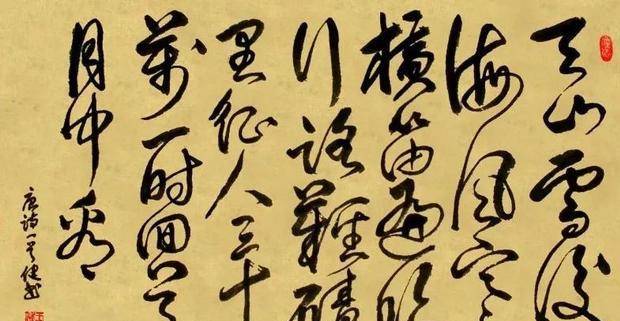 天山雪後
海風寒
橫笛遍吹
行路難磧
里征人三十
萬一時回首
月中看
唐詩一首